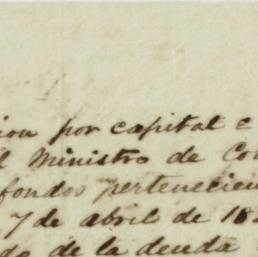 ion por capital e
l Ministro de Con
fondos pertenecien
7 de abril de 18
do de la deuda